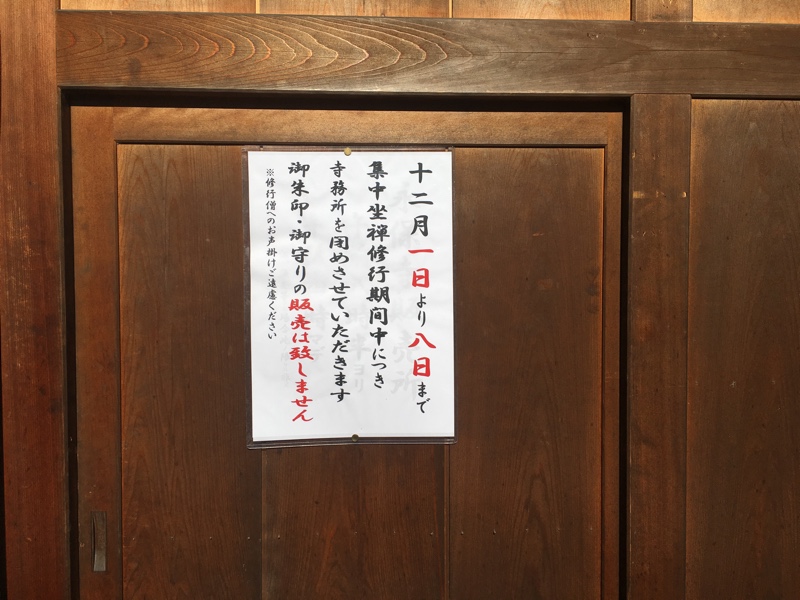 十二月一日より八日まで
集中坐禅修行期間中につき
寺務所を閉めさせていただきます
御朱印・御守りの販売は致しません
※修行僧へのお声掛けご遠慮ください